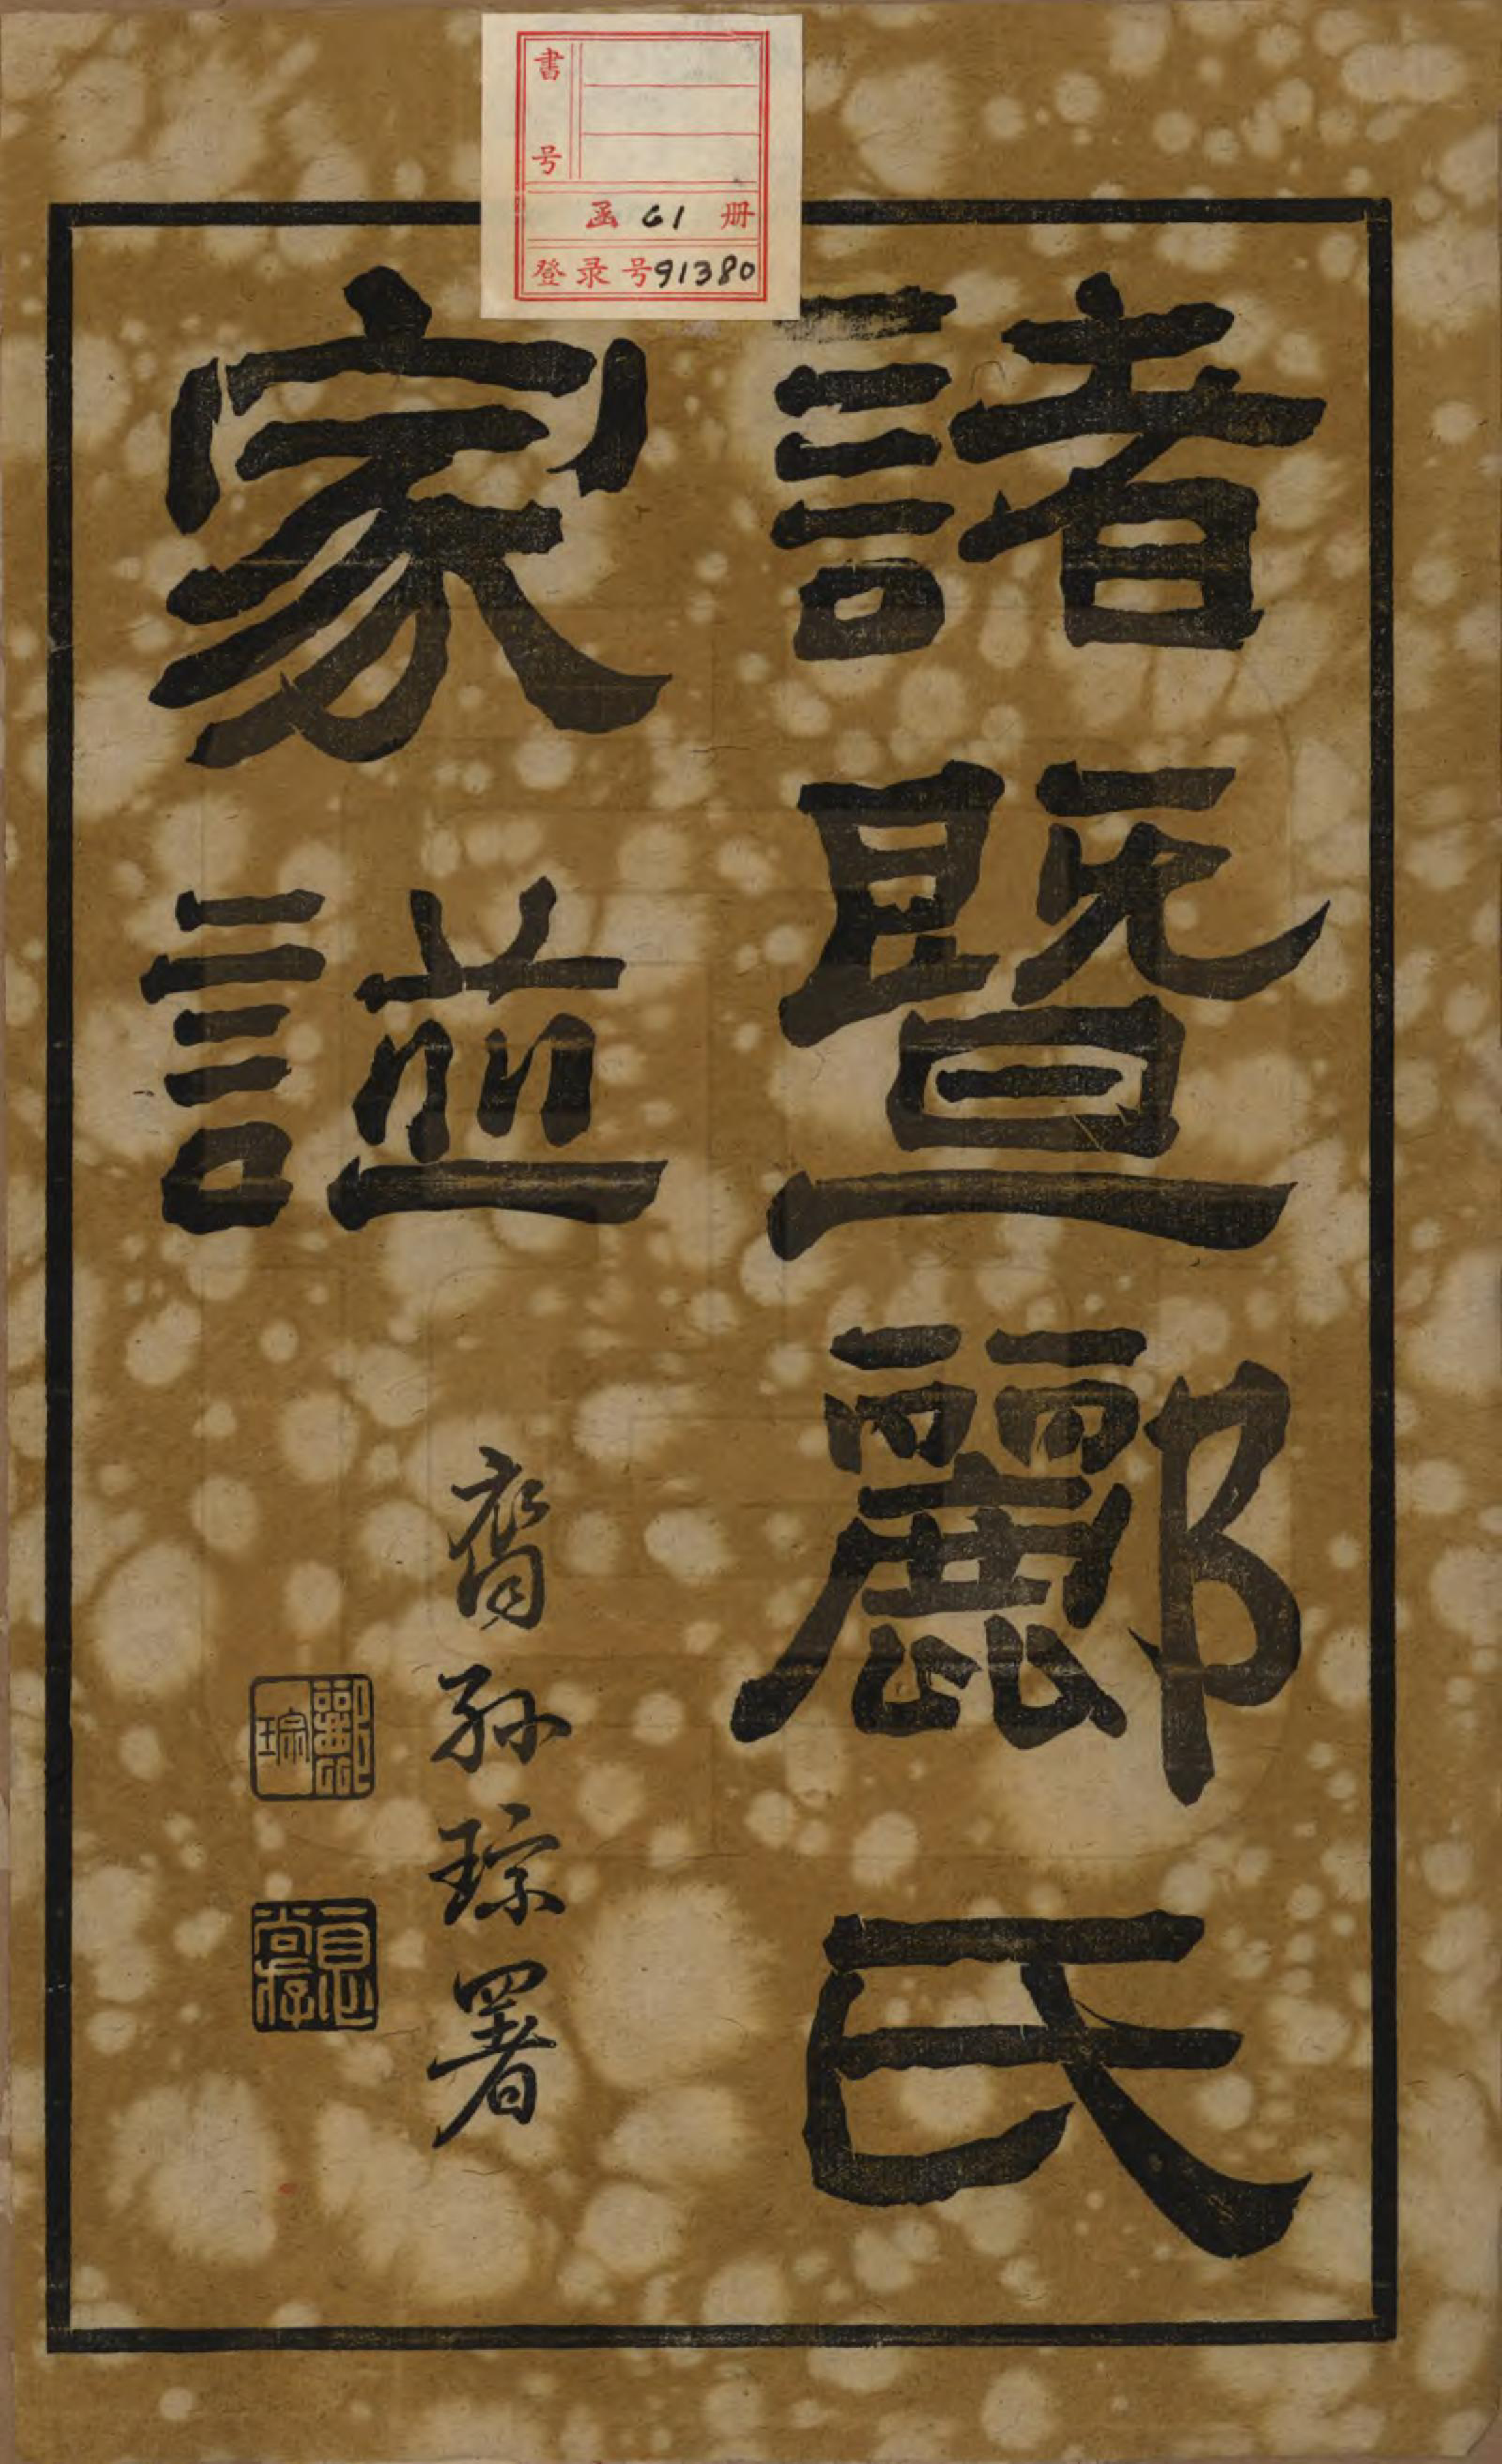 書号
函 61 册
登录号 91380
諸暨酈氏
家譜
裔孫琮署
酈琮